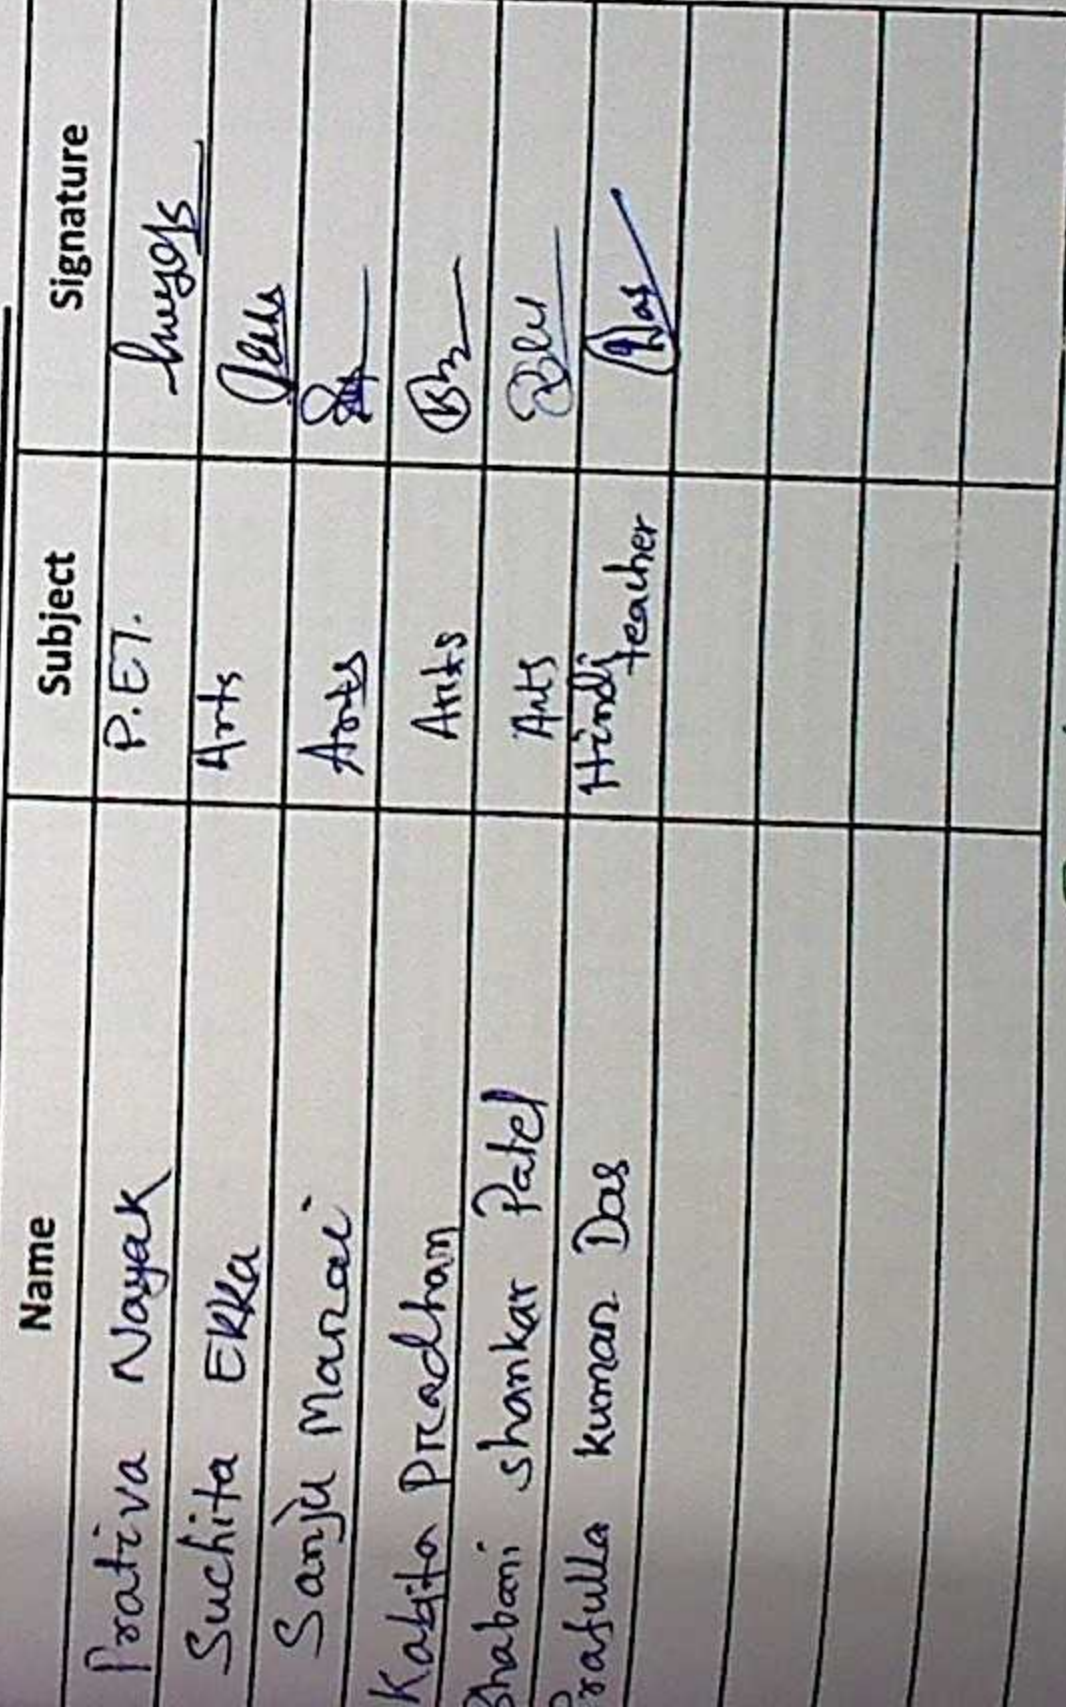 Name Subject Signature
Prativa Nayak P.ET.
Suchita Ekka Arts
Sanju Marai Arts
Kabita Pradhan Arts
Bhabani shankar Patel Arts
Prafulla kumar Das Hindi teacher Das